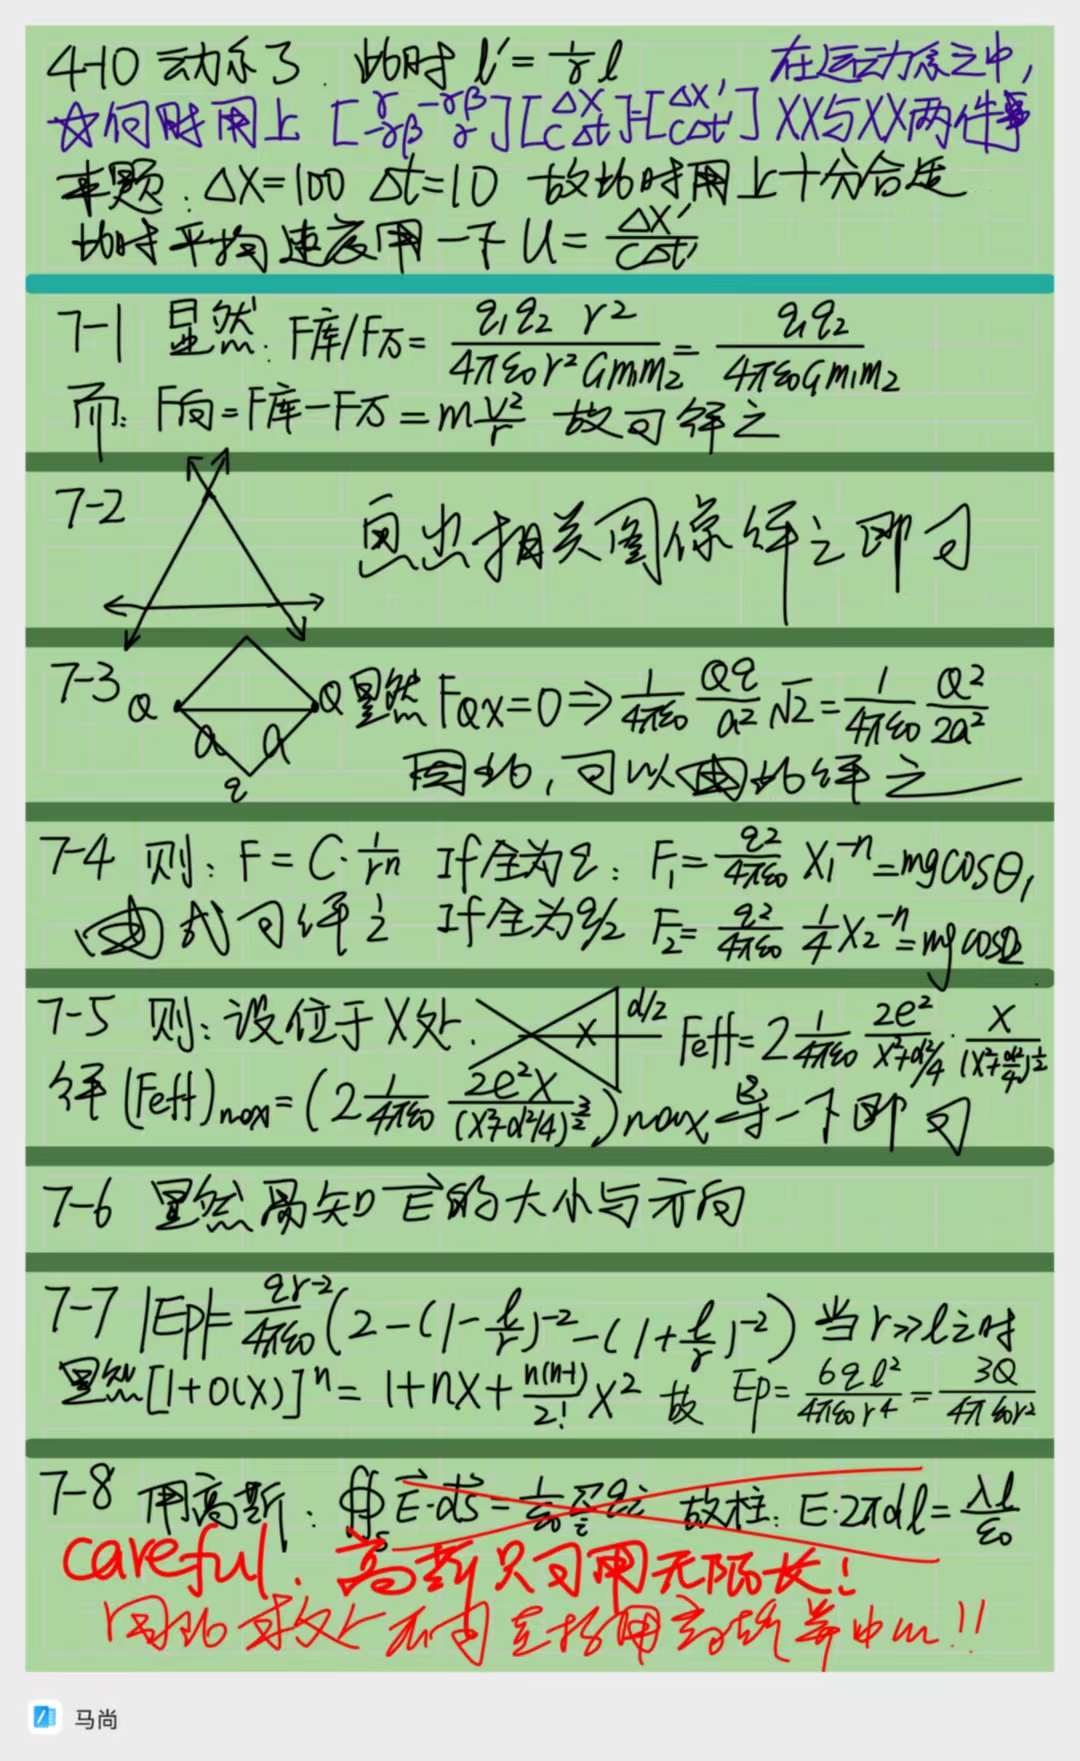 4-10 动系了. 此时 l' = 1/γ l 在运动系之中,
☆何时用上 [γ -γβ -γβ γ][ΔX CΔt]=[ΔX' CΔt'] XX与XX两件事
本题: ΔX=100 Δt=10 故此时用上十分合适
此时平均速度用一下 U = ΔX'/CΔt'
7-1 显然: F库/F万 = q₁q₂ r²/4πε₀r²Gm₁m₂ = q₁q₂/4πε₀Gm₁m₂
而: F向=F库-F万 = m v²/r 故可解之
7-2 画出相关图像解之即可
7-3 Q Q a a q 显然 FQX=0 ⇒ 1/4πε₀ Qq/a² √2 = 1/4πε₀ Q²/2a²
因此, 可以由此解之
7-4 则: F = C·1/rⁿ If 全为q: F₁ = q²/4πε₀ X₁⁻ⁿ = mgcosθ₁
由式可解之 If 全为q/2 F₂ = q²/4πε₀ 1/4 X₂⁻ⁿ = mgcosθ₂
7-5 则: 设位于X处. X d/2 Feff = 2 1/4πε₀ 2e²/X²+d²/4 · X/(X²+d²/4)^½
解 (Feff)max = (2 1/4πε₀ 2e²X/(X²+d²/4)^3/2)max 导一下即可
7-6 显然易知 E→的大小与方向
7-7 |Ep| = qr⁻²/4πε₀ (2-(1-l/r)⁻²-(1+l/r)⁻²) 当r≫l之时
显然[1+O(X)]ⁿ = 1+nX+n(n-1)/2! X² 故 Ep = 6ql²/4πε₀r⁴ = 3Q/4πε₀r²
7-8 用高斯: ∯s E→·dS→ = 1/ε₀ Σi qi 故柱: E·2πdl = λl/ε₀
careful. 高斯只可用无限长!
因此求处不可直接用高斯算中心!!
马尚